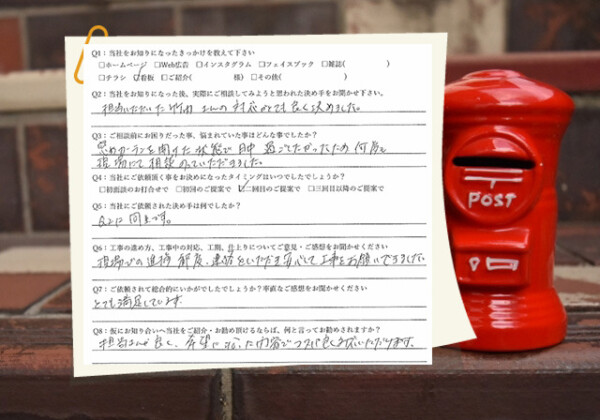 Q1：当社をお知りになったきっかけを教えて下さい
□ホームページ □Web広告 □インスタグラム □フェイスブック □雑誌( )
□チラシ ☑看板 □ご紹介( 様) □その他( )
Q2：当社をお知りになった後、実際にご相談してみようと思われた決め手をお聞かせ下さい。
担当いただいた さんの対応がとても良く決めました。
Q3：ご相談前にお困りだった事、悩まれていた事はどんな事でしたか？
カーテンを開けた状態で日中過ごしたかったため何度も
現場にて相談 いただきました。
Q4：当社にご依頼頂く事をお決めになったタイミングはいつでしたでしょうか？
□初面談のお打合せで □初回のご提案で ☑二回目のご提案で □三回目以降のご提案で
Q5：当社にご依頼された決め手は何でしたか？
Q2に同じです。
Q6：工事の進め方、工事中の対応、工期、仕上りについてご意見・ご感想をお聞かせください
現場での進捗都度、連絡をいただき安心して工事をお願いできました。
Q7：ご依頼されて総合的にいかがでしたでしょうか？率直なご感想をお聞かせください
とても満足しています
Q8：仮にお知り合いへ当社をご紹介・お勧め頂けるならば、何と言ってお勧めされますか？
担当さんが良く、希望に た内容で いただけます。
POST